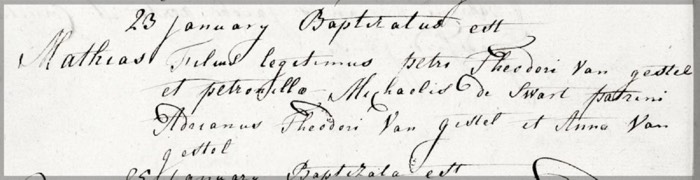 23 january Baptizatus est
Mathias Filius legitimus petri Theodori Van gestel
et petronilla Michaelis de Swart patrini
Adrianus Theodori Van gestel et Anna Van
gestel
25 january Baptizata est